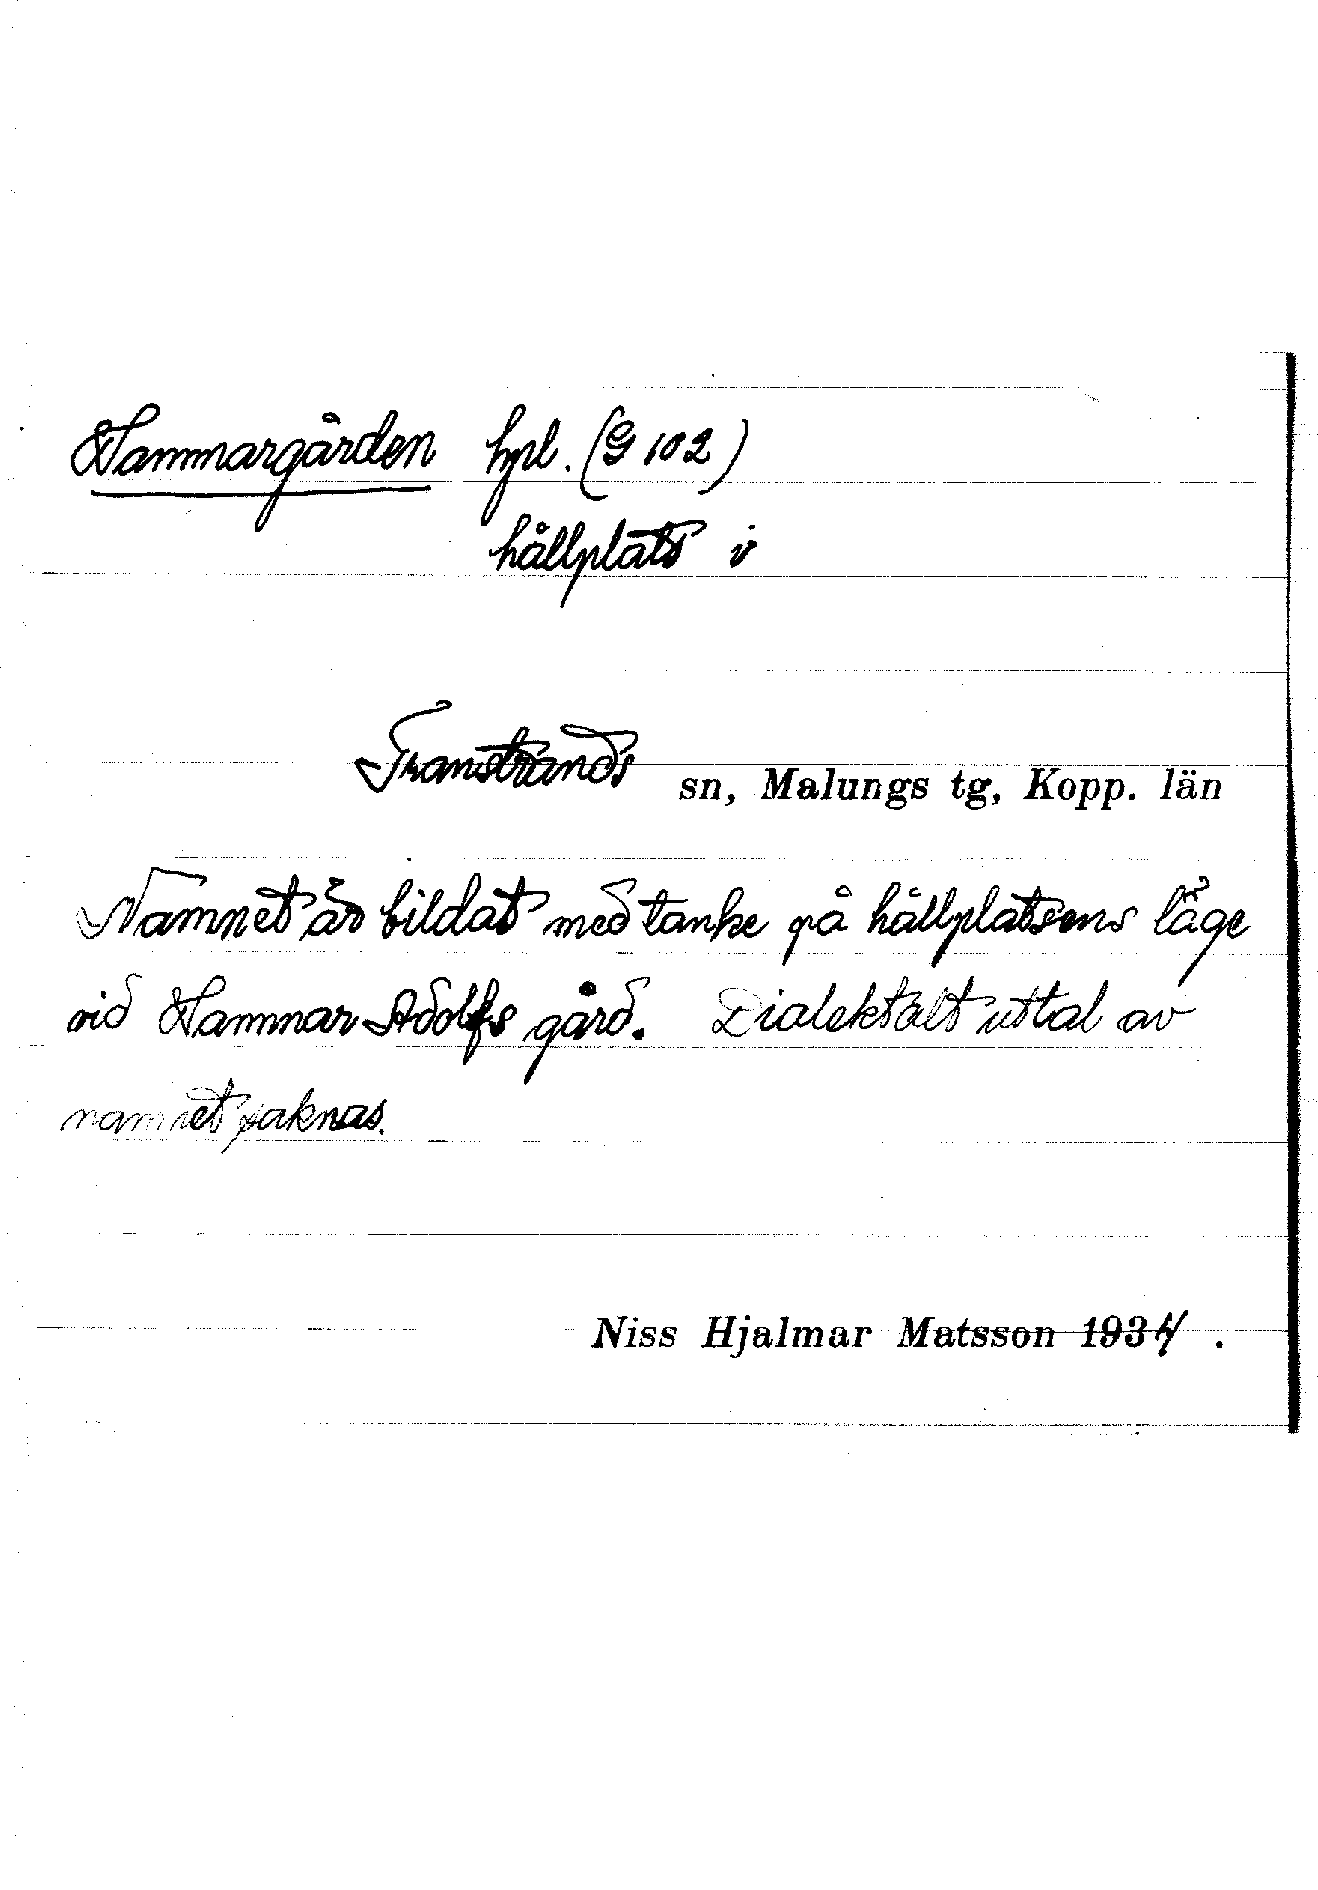 Hammargården hpl. (G 102)
hållplats i
Transtrands sn, Malungs tg, Kopp. län
Namnet är bildat med tanke på hållplatsens läge
vid Hammar Adolfs gård. Dialektalt uttal av
namnet saknas.
Niss Hjalmar Matsson 1934.